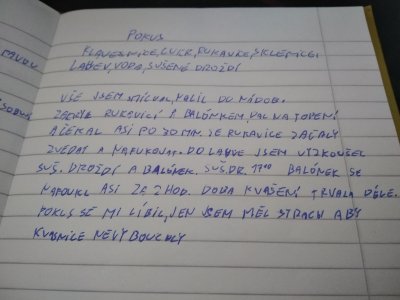 POKUS
CUKR, RUKAVICE, SKLENICE,
LAHEV, VODA, SUŠENÉ DROŽDÍ
VŠE JSEM SMÍCHAL, NALIL DO NÁDOB.
RUKAVICÍ A BALÓNKEM, DAL NA TOPENÍ
A ČEKAL ASI PO 30 MIN. SE RUKAVICE ZAČALY
ZVEDAT A NAFUKOVAT. DO LAHVE JSEM VYZKOUŠEL
SUŠ. DROŽDÍ A BALÓNEK. SUŠ. DR. BALÓNEK SE
NAFOUKL ASI ZA 2 HOD. DOBA KVAŠENÍ TRVALA DÉLE.
POKUS SE MI LÍBIL, JEN JSEM MĚL STRACH ABY
KVASNICE NEVYBOUCHLY